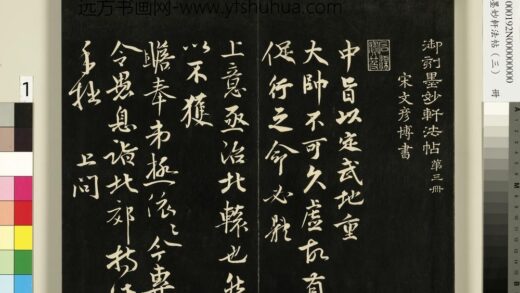 远方书画网-www.yfshuhua.com
御刻墨妙軒法帖 第三冊
宋文彦博書
中旨以定武地重
大帥不可久虛故有
促行之命必能
上意亟治北轅也
以不獲
瞻奉弟極依〻今專
令愚息詣北郊
手狀 上問
000192N000000000
墨妙軒法帖（三） 冊
1